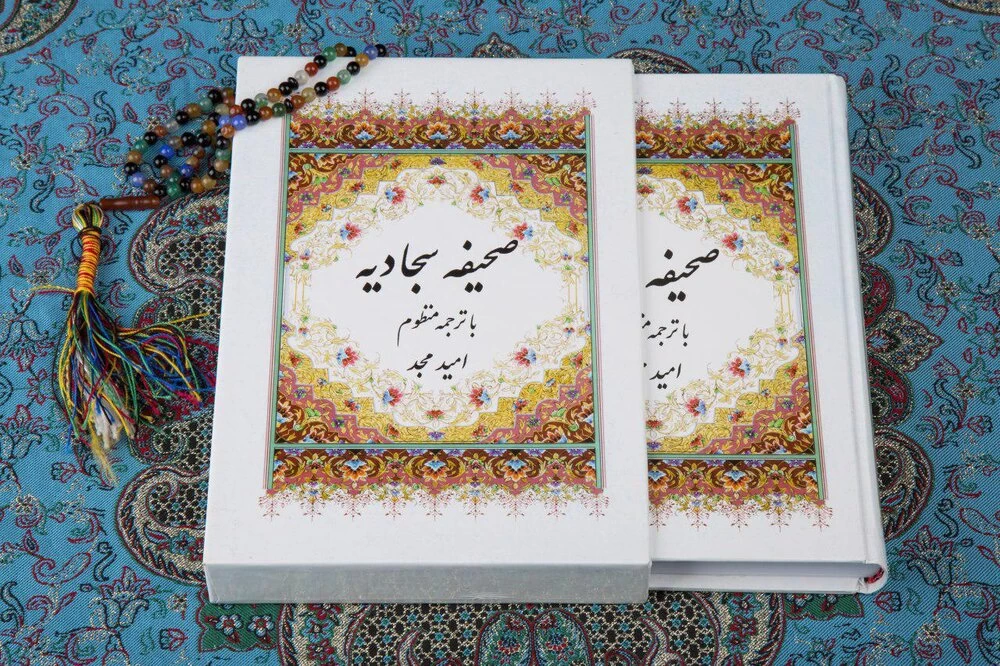 صحیفه سجادیه
با ترجمه منظوم
امید مجد
صحیفه
با ترجمه
امید